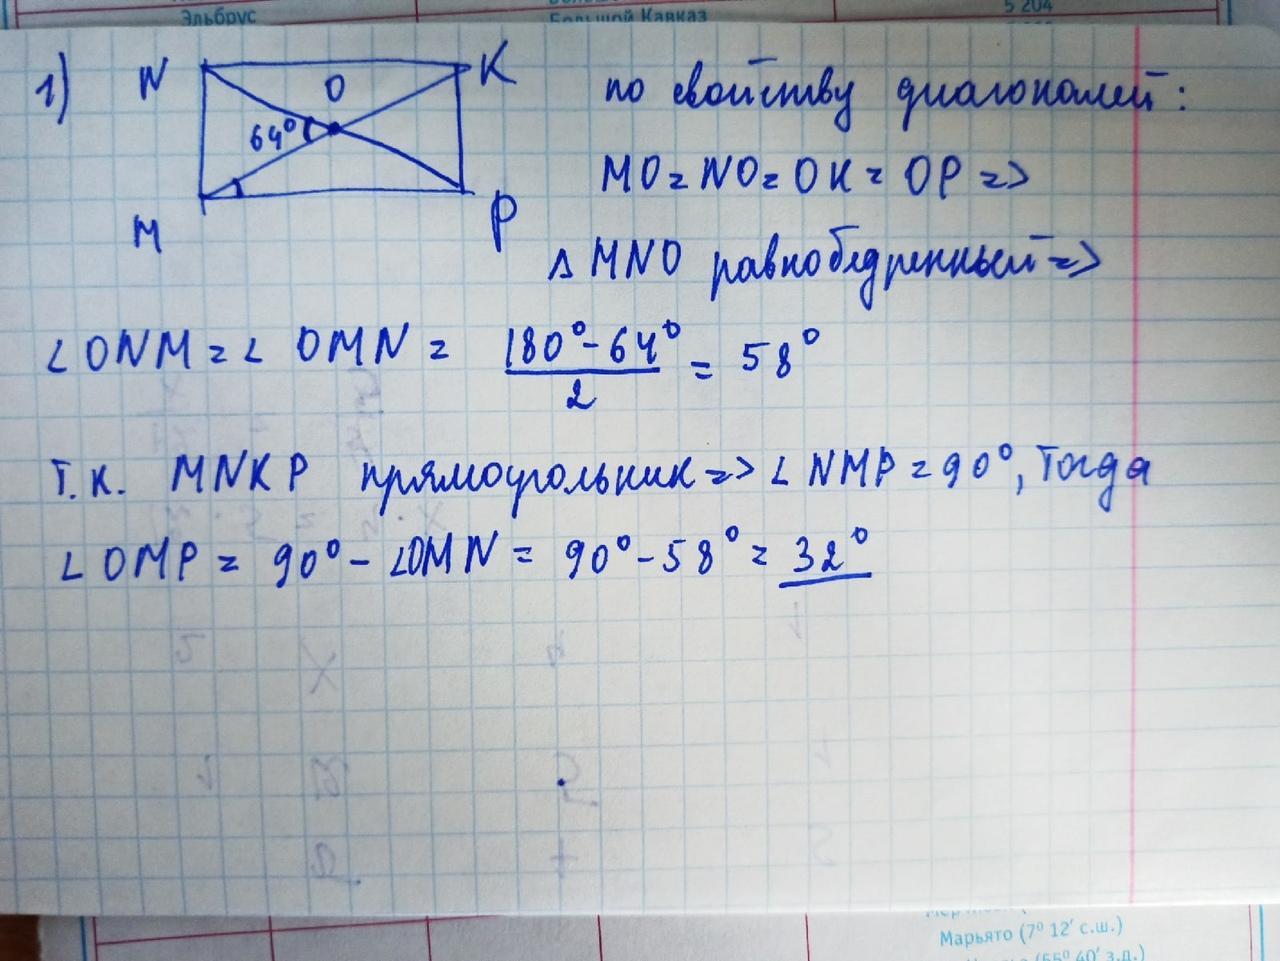 Эльбрус
Большой Кавказ
5 204
1)
N
K
O
64°
M
P
по свойству диагоналей:
MO = NO = OK = OP =>
Δ MNO равнобедренный =>
∠ ONM = ∠ OMN = 180° - 64° / 2 = 58°
Т.к. MNKP прямоугольник => ∠ NMP = 90°, Тогда
∠ OMP = 90° - ∠OMN = 90° - 58° = 32°
Марьято (7° 12′ с.ш.)
(55° 40′ з.д.)